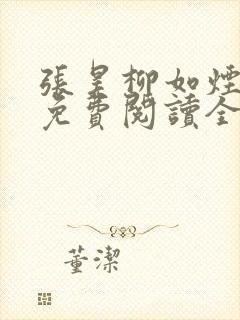 張皇柳如煙
免費閱讀全
董潔